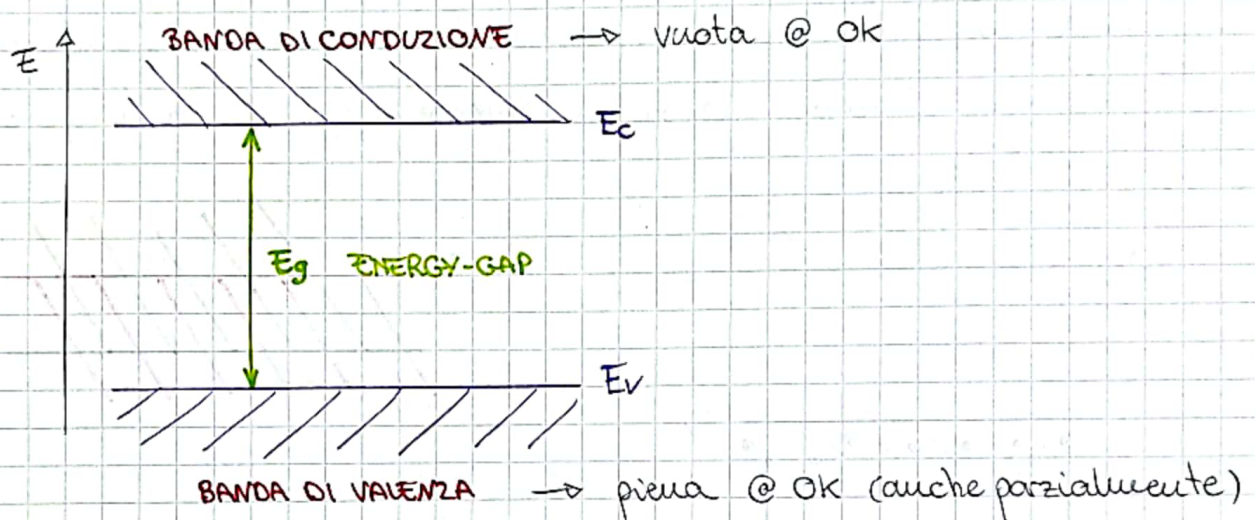 E
BANDA DI CONDUZIONE → vuota @ 0k
Ec
Eg ENERGY-GAP
Ev
BANDA DI VALENZA → piena @ 0k (anche parzialmente)